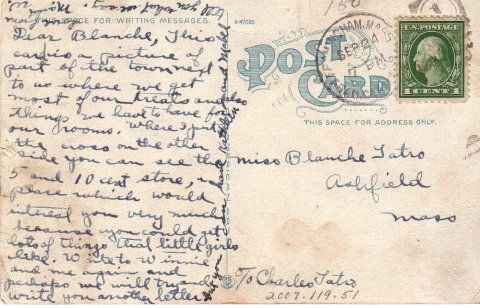 THIS SPACE FOR WRITING MESSAGES.
A-47025
Dear Blanche, This
card is a picture of
part of the town next
to us where we get
most of our treats and also
things we have to have for
our rooms. Where I put
the cross on the other
side you can see the
5 and 10 cent store, a
place which would
interest you very much
because you could get
lots of things that little girls
like. Write to Winnie
and me again and
perhaps we will try and
write you another letter
Post
Card
THIS SPACE FOR ADDRESS ONLY.
FRAMINGHAM, MASS.
SEP 24
PM
U.S. POSTAGE
1 CENT 1
Miss Blanche Tatro
Ashfield
Mass
To Charles Tatro
2007.119.51